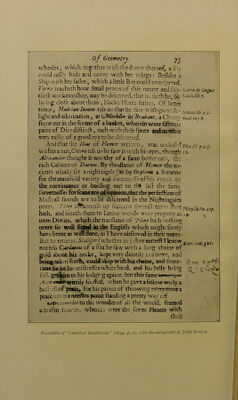 Of Geometry. 75
wheeles, which together with the dover thereof, a flie
could easily hide and cover with her wings: Besides a
Ship with her sailes, which a little Bee could overspread.
Varro teacheth how small peeces of this nature and
workmanship, may be discerned, that is, saith he, by
laying close about them, blacke Horse haires. Of latter
times, Hadrian Junius tels us that he saw with great de-
light and admiration, at Mechlin in Brabant, a Cherry
stone cut in the forme of a basket, wherein were fifteen
paire of Dice distinct, each with their spots and number
very easily of a good eye to be discerned.
And that the Ilias of Homer written, was enclosed
within a nut, Cicero tels us he saw it with his eyes, though
Alexander thought it worthy of a farre better case, the
rich Cabinet of Darius. By the statue of Homer the an-
cients usually set a nightingale, as by Orpheus a Swanne
for the manifold variety and sweetnesse of his voice, or
the continuance or holding out to the last the same
sweetnesse: for some are of opinion, that the perfection of
Musicall sounds are to be discerned in the Nightingales
notes. Pliny
hath, and setteth them to Latine words very properly
unto Ditties, which the translator of Pliny hath nothing
neere so well fitted in the English which might surely
have beene as well done, as I have observed in their notes.
But to returne, Scaliger (whether in jest or earnest I know
not) tels Cardanus of a flea he saw with a long chaine of
gold about his necke, kept very daintily in a boxe, and
being taken forth, could skip with his chaine, and some-
time sucke his mistresses white hand, and his belly being
full, get him to his lodging againe, but this same
wittily scoffed, when he gave a fellow onely a
bushell of pease, for his paines of throwing every time a
pease upon a needles point standing a pretty way off.
Archimedes to the wonder of all the world, framed
a brasen heaven, wherein were the seven Planets with
their